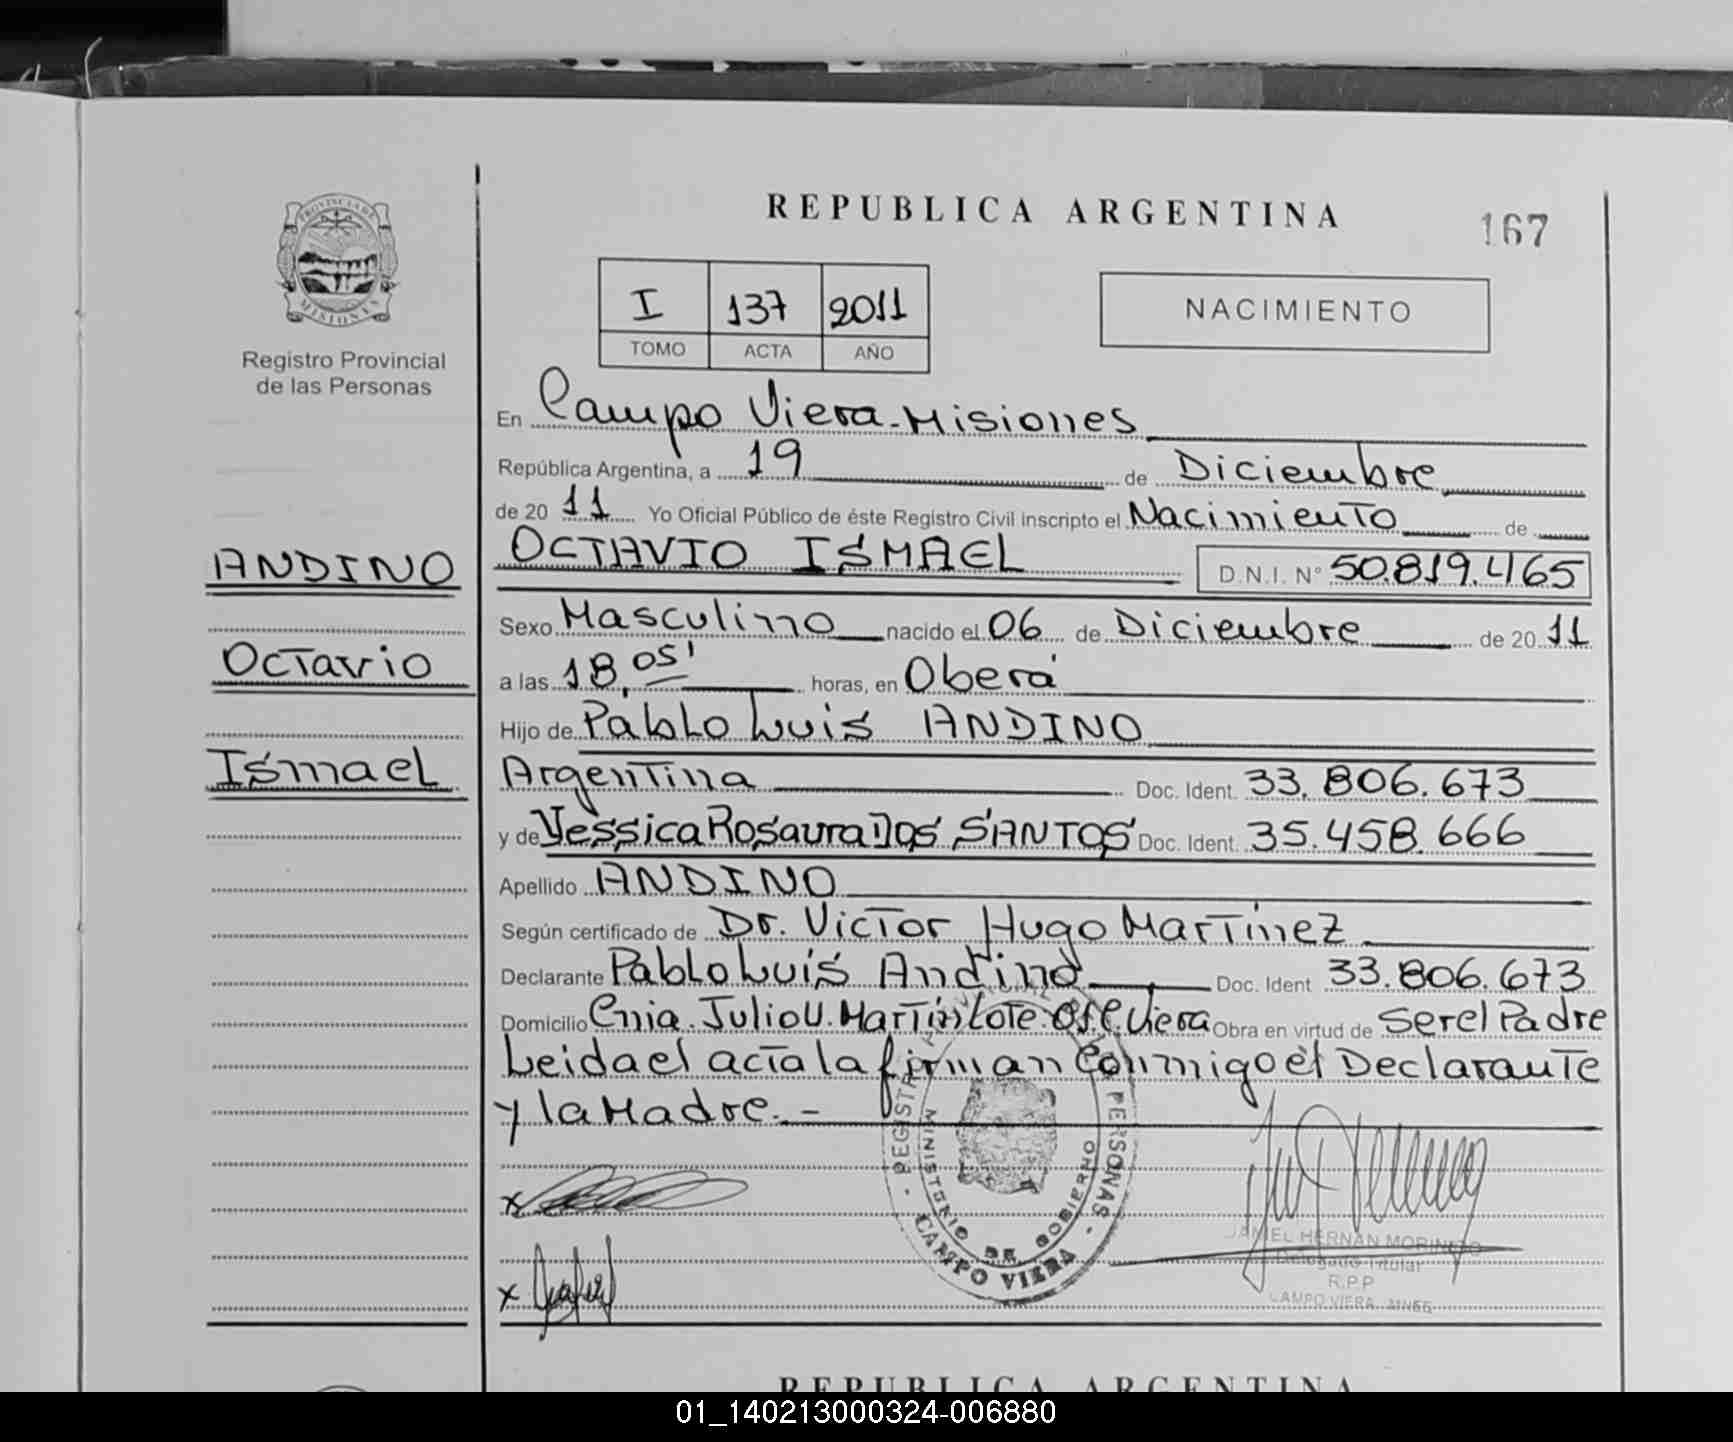 PROVINCIA DE
MISIONES
Registro Provincial
de las Personas
ANDINO
Octavio
Ismael
REPUBLICA ARGENTINA
167
I 137 2011
TOMO ACTA AÑO
NACIMIENTO
En Campo Viera - Misiones
República Argentina, a 19 de Diciembre
de 20 11 Yo Oficial Público de éste Registro Civil inscripto el Nacimiento de
OCTAVIO ISMAEL D.N.I. N° 50.819.465
Sexo Masculino nacido el 06 de Diciembre de 20 11
a las 18,05' horas, en Oberá
Hijo de Pablo Luis ANDINO
Argentina Doc. Ident. 33.806.673
y de Yessica Rosaura Dos SANTOS Doc. Ident. 35.458.666
Apellido ANDINO
Según certificado de Dr. Victor Hugo Martinez
Declarante Pablo Luis Andino Doc. Ident 33.806.673
Domicilio Cnia. Julio U. Martin Lote C. Viera Obra en virtud de ser el Padre
Leida el acta la firman conmigo el Declarante
y la Madre. -
PERSONAS
MINISTERIO DE GOBIERNO
CAMPO VIERA
x
x
HERNAN
Delegado Titular
R.P.P
CAMPO VIERA - MNES
REPUBLICA ARGENTINA
01_140213000324-006880